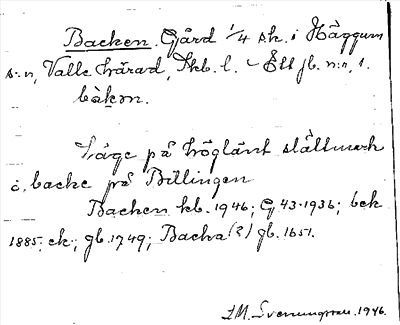 Backen. Gård 1/4 sk. i Häggum
s:n, Valle härad, Skb. l. - Ett jb. n:r, 1.
bàkɷn.
Läge på höglänt slättmark
o. backe på Billingen
Backen kb. 1946; G 43-1936; bek
1885; ek; gb. 1749; Backa (?) gb. 1651.
I.M. Svenungsson. 1946.